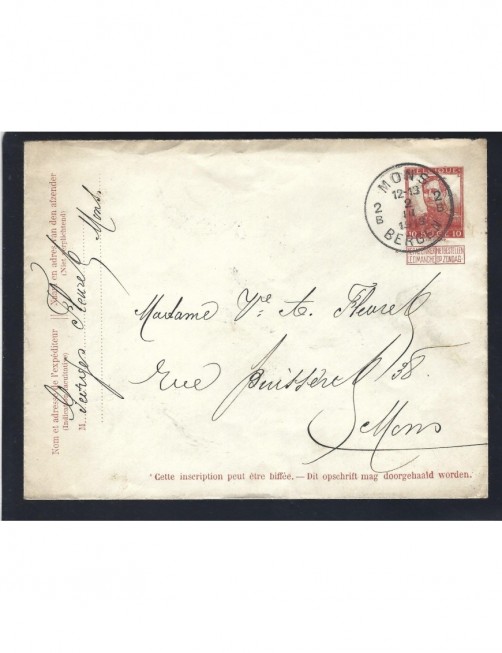 BELGIQUE
10 10
NE PAS LIVRER LE DIMANCHE NIET BESTELLEN OP ZONDAG
MONS
12-13
2
2 B 2 B
BERGEN
Nom et adresse de l'expéditeur Naam en adres van den afzender
(Indication facultative) (Niet verplichtend)
M. Georges Fleurel Mons.
Madame Ve A. Fleurel
rue Buisseret 38.
Mons
*Cette inscription peut être biffée. — Dit opschrift mag doorgehaald worden.